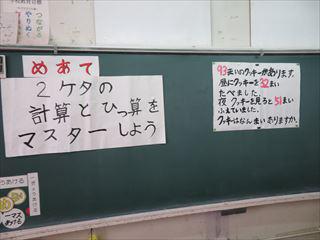 つながる
やりぬく
めあて
２ケタの
計算とひっ算を
マスターしよう
93まいのクッキーがあります。
昼にクッキーを32まい
たべました。
夜、クッキーを見ると51まい
ふえていました。
クッキーはなんまいありますか。